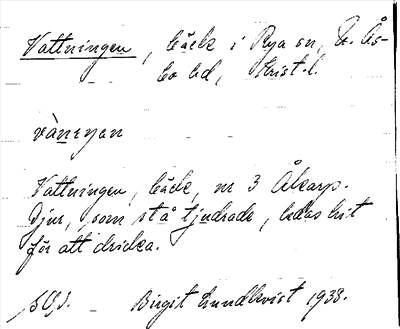 Vattningen, bäck i Rya sn, N. Ås-
bo hd, Krist. l.
Vattningen, bäck, nr 3 Åkarp.
Djur, som stå tjudrade, ledas hit
för att dricka.
Birgit Lundkvist 1938.